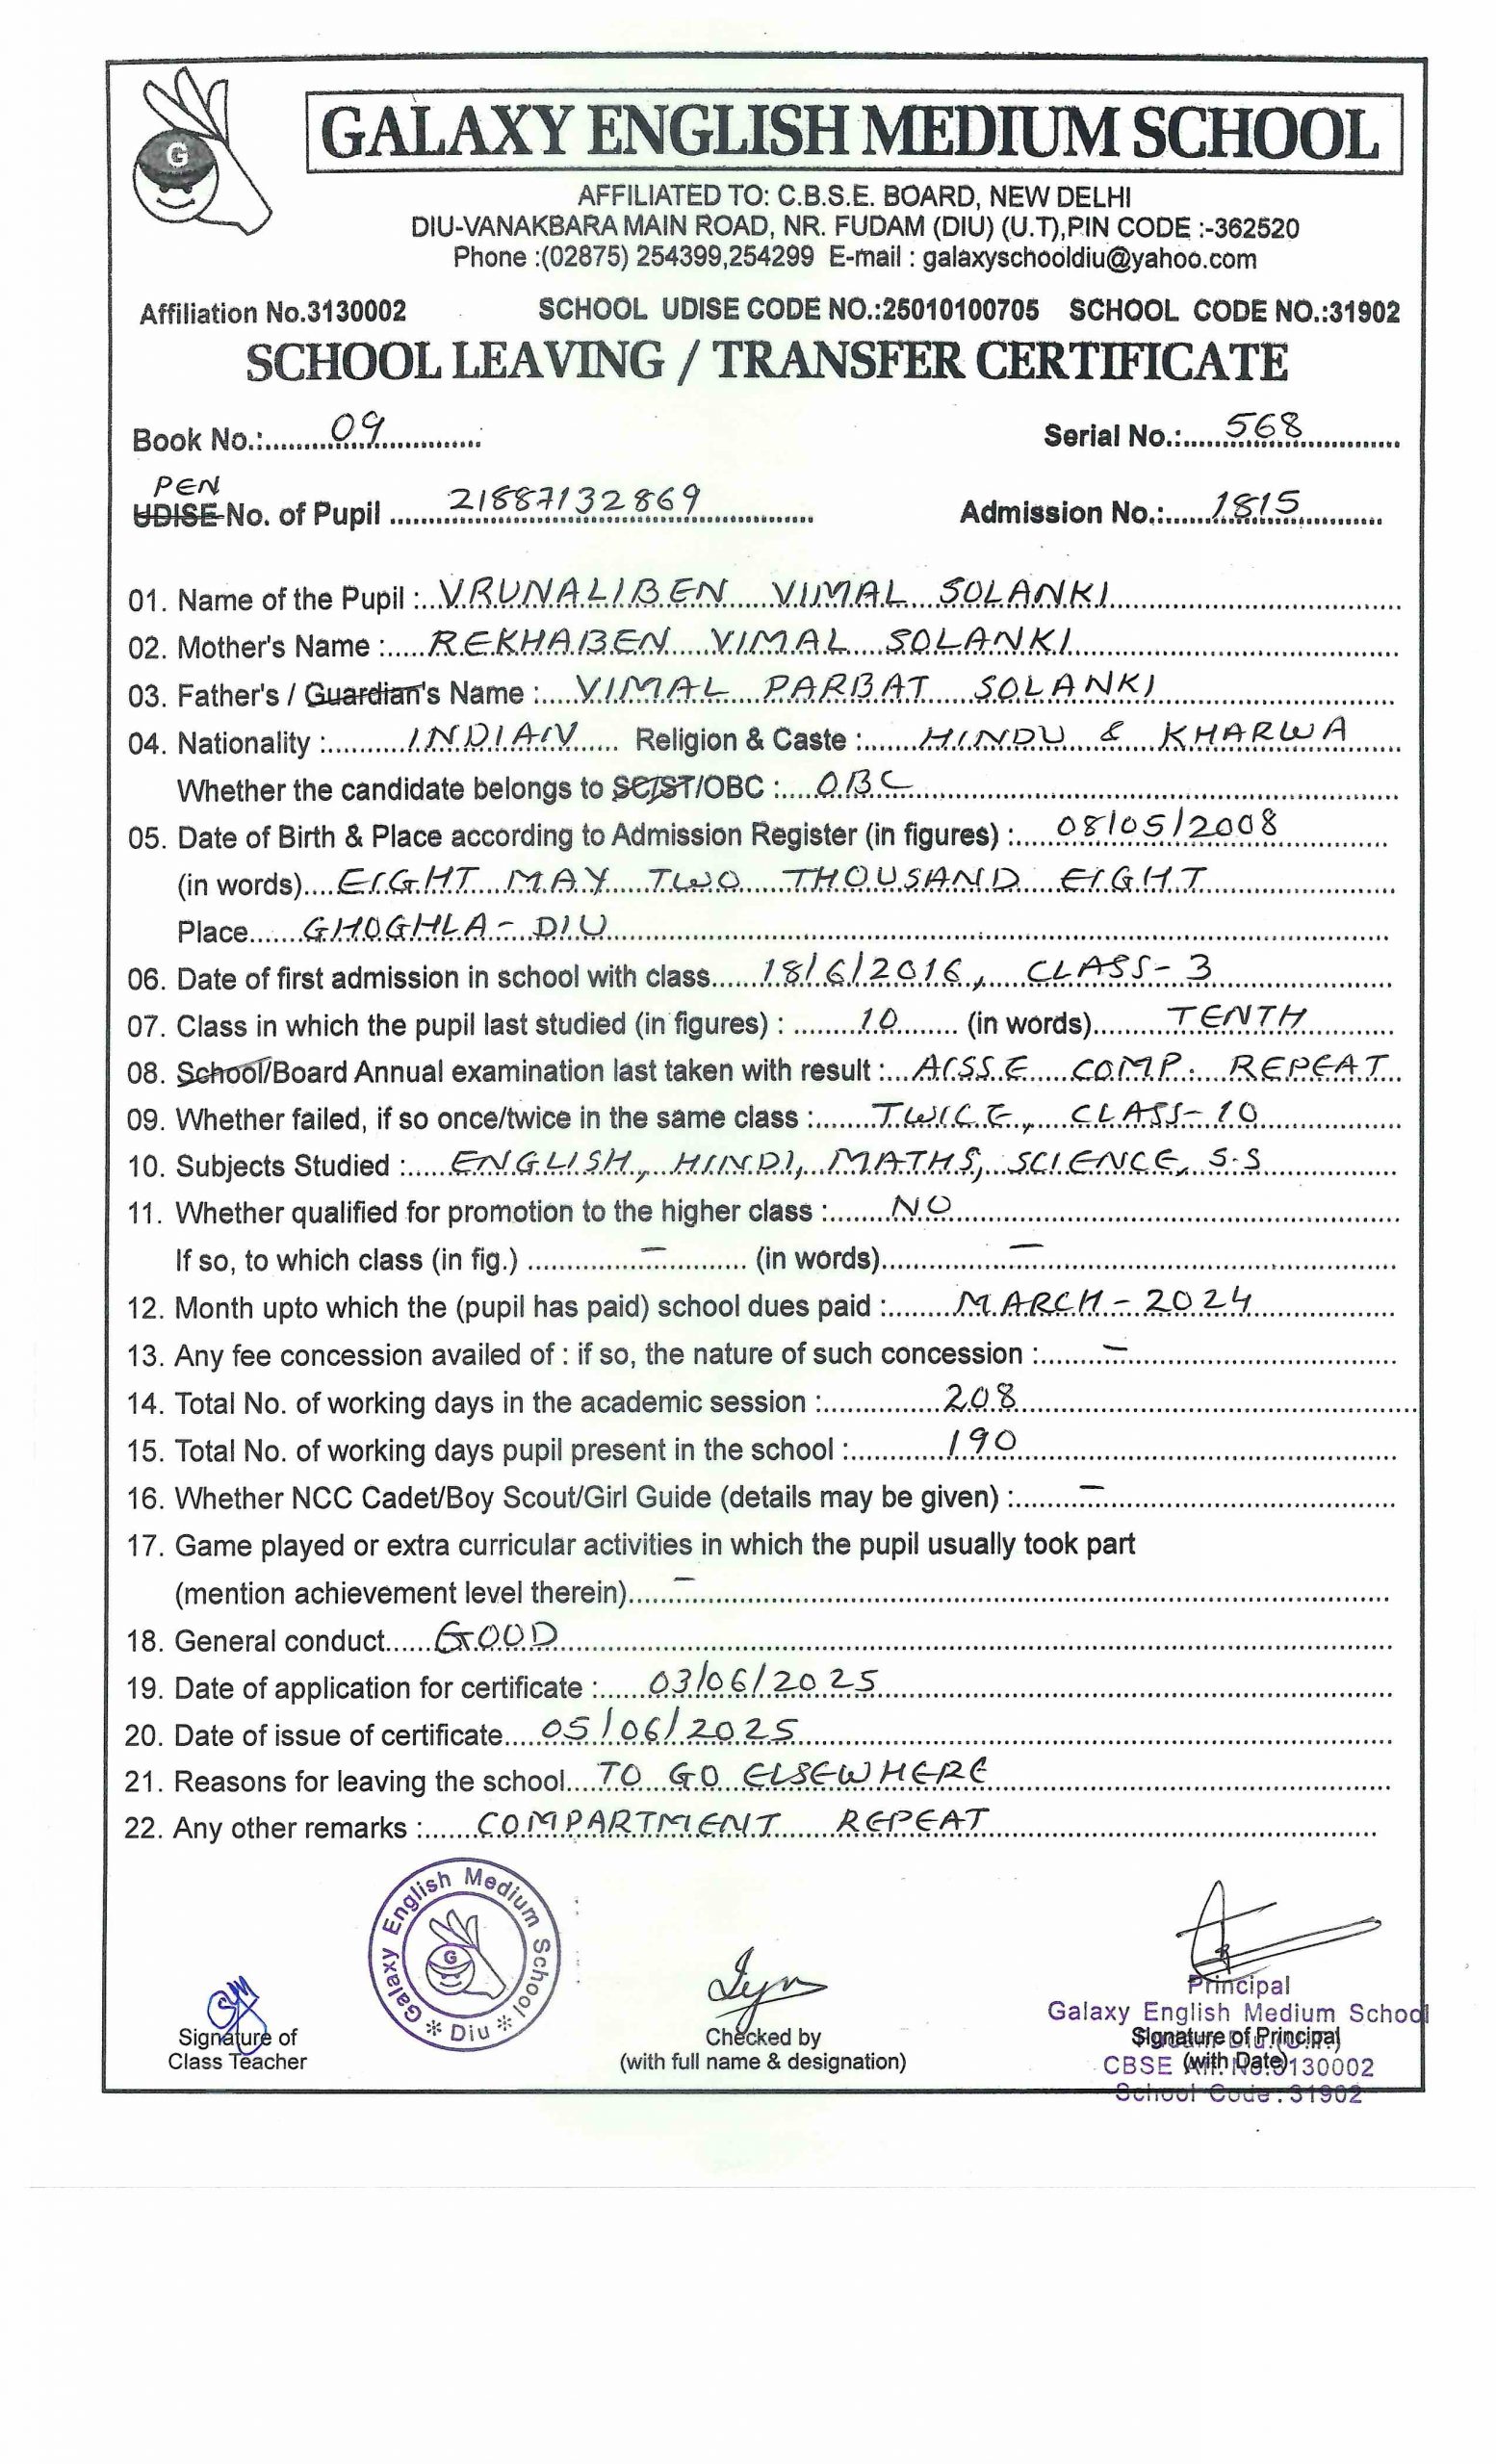 G
GALAXY ENGLISH MEDIUM SCHOOL
AFFILIATED TO: C.B.S.E. BOARD, NEW DELHI
DIU-VANAKBARA MAIN ROAD, NR. FUDAM (DIU) (U.T),PIN CODE :-362520
Phone :(02875) 254399,254299 E-mail : galaxyschooldiu@yahoo.com
Affiliation No.3130002 SCHOOL UDISE CODE NO.:25010100705 SCHOOL CODE NO.:31902
SCHOOL LEAVING / TRANSFER CERTIFICATE
Book No.: 09 Serial No.: 568
PEN
UDISE No. of Pupil 21887132869 Admission No.: 1815
01. Name of the Pupil : VRUNALIBEN VIMAL SOLANKI
02. Mother's Name : REKHABEN VIMAL SOLANKI
03. Father's / Guardian's Name : VIMAL PARBAT SOLANKI
04. Nationality : INDIAN Religion & Caste : HINDU & KHARWA
Whether the candidate belongs to SC/ST/OBC : OBC
05. Date of Birth & Place according to Admission Register (in figures) : 08/05/2008
(in words) EIGHT MAY TWO THOUSAND EIGHT
Place GHOGHLA - DIU
06. Date of first admission in school with class 18/6/2016, CLASS - 3
07. Class in which the pupil last studied (in figures) : 10 (in words) TENTH
08. School/Board Annual examination last taken with result : AISSE COMP. REPEAT
09. Whether failed, if so once/twice in the same class : TWICE, CLASS - 10
10. Subjects Studied : ENGLISH, HINDI, MATHS, SCIENCE, S.S
11. Whether qualified for promotion to the higher class : NO
If so, to which class (in fig.) — (in words) —
12. Month upto which the (pupil has paid) school dues paid : MARCH - 2024
13. Any fee concession availed of : if so, the nature of such concession : —
14. Total No. of working days in the academic session : 208
15. Total No. of working days pupil present in the school : 190
16. Whether NCC Cadet/Boy Scout/Girl Guide (details may be given) : —
17. Game played or extra curricular activities in which the pupil usually took part
(mention achievement level therein) —
18. General conduct GOOD
19. Date of application for certificate : 03/06/2025
20. Date of issue of certificate 05/06/2025
21. Reasons for leaving the school TO GO ELSEWHERE
22. Any other remarks : COMPARTMENT REPEAT
Galaxy English Medium School * Diu *
G
Principal
Galaxy English Medium School
Signature of Class Teacher
Checked by
(with full name & designation)
Signature of Principal
(with Date)
CBSE Aff. No.3130002
School Code : 31902